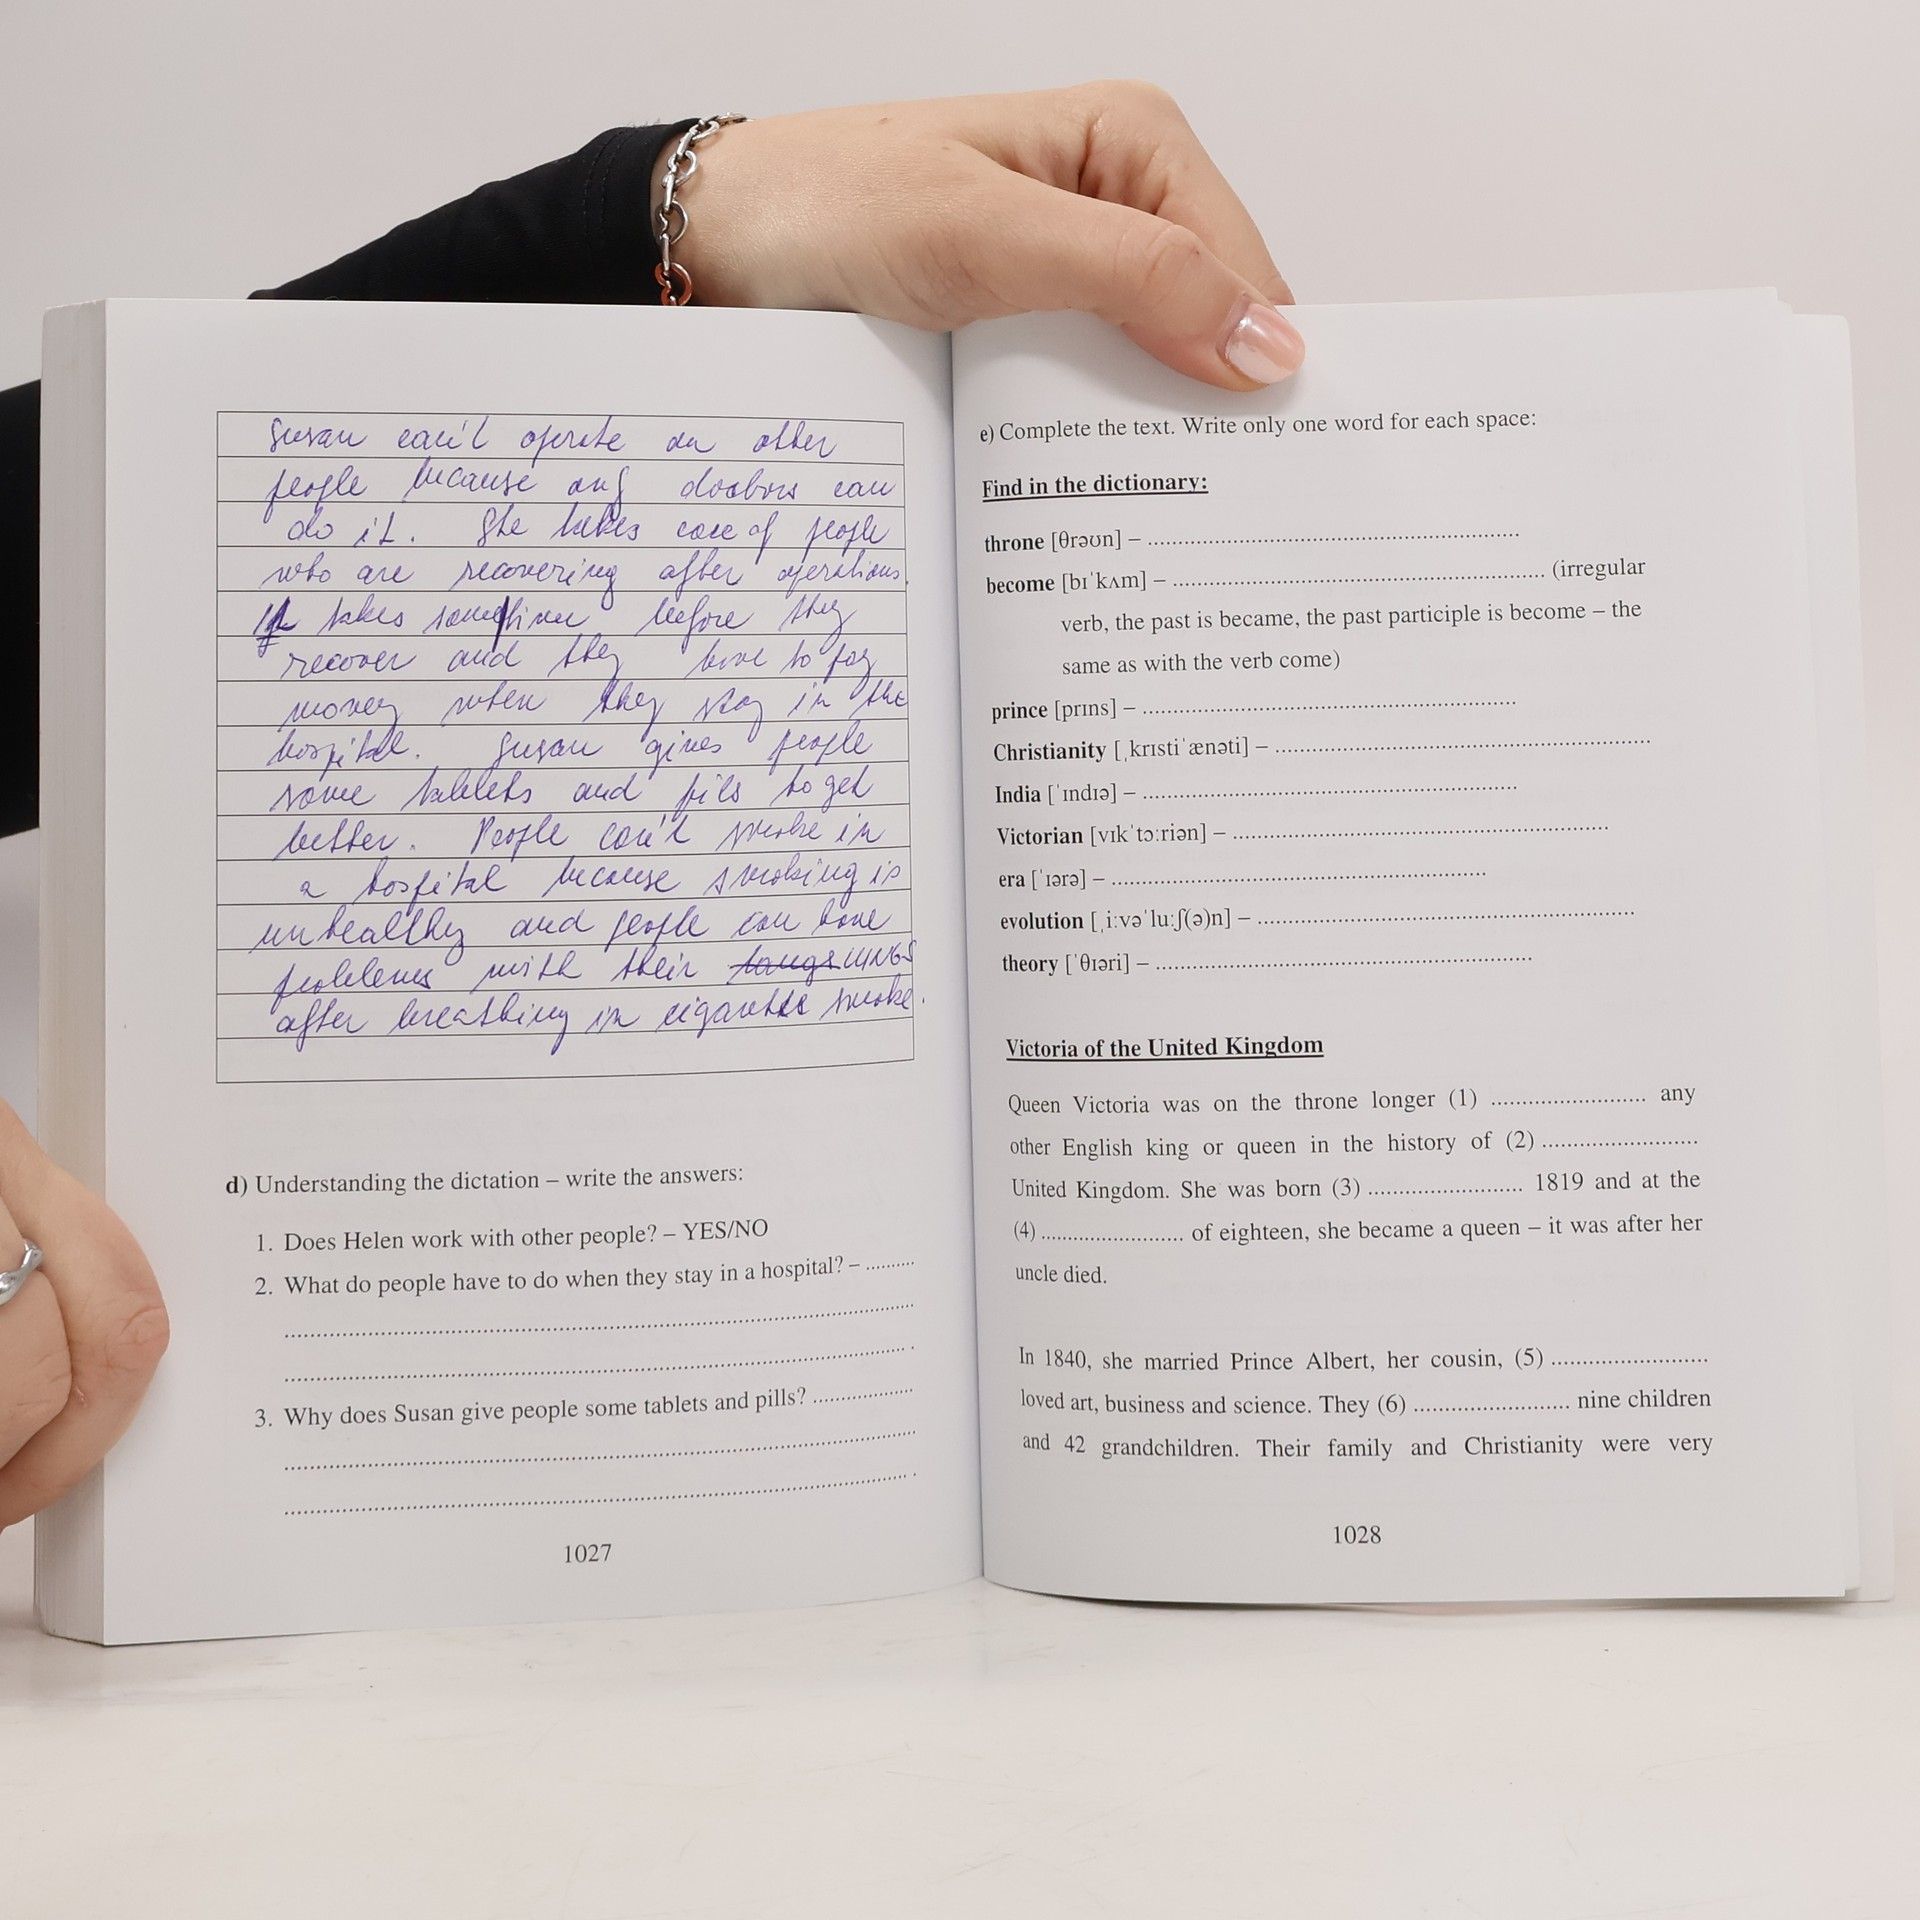 Susan can't operate on other
people because only doctors can
do it. She takes care of people
who are recovering after operations.
It takes sometime before they
recover and they have to pay
money when they stay in the
hospital. Susan gives people
some tablets and pils to get
better. People can't smoke in
a hospital because smoking is
unhealthy and people can have
problems with their LUNGS
after breathing in cigarette smoke.
d) Understanding the dictation – write the answers:
1. Does Helen work with other people? – YES/NO
2. What do people have to do when they stay in a hospital? – ..........
3. Why does Susan give people some tablets and pills? ..................
1027
e) Complete the text. Write only one word for each space:
Find in the dictionary:
throne [θrəʊn] – ..........
become [bɪˈkʌm] – .......... (irregular
verb, the past is became, the past participle is become – the
same as with the verb come)
prince [prɪns] – ..........
Christianity [ˌkrɪstiˈænəti] – ..........
India [ˈɪndɪə] – ..........
Victorian [vɪkˈtɔːriən] – ..........
era [ˈɪərə] – ..........
evolution [ˌiːvəˈluːʃ(ə)n] – ..........
theory [ˈθɪəri] – ..........
Victoria of the United Kingdom
Queen Victoria was on the throne longer (1) .......... any
other English king or queen in the history of (2) ..........
United Kingdom. She was born (3) .......... 1819 and at the
(4) .......... of eighteen, she became a queen – it was after her
uncle died.
In 1840, she married Prince Albert, her cousin, (5) ..........
loved art, business and science. They (6) .......... nine children
and 42 grandchildren. Their family and Christianity were very
1028